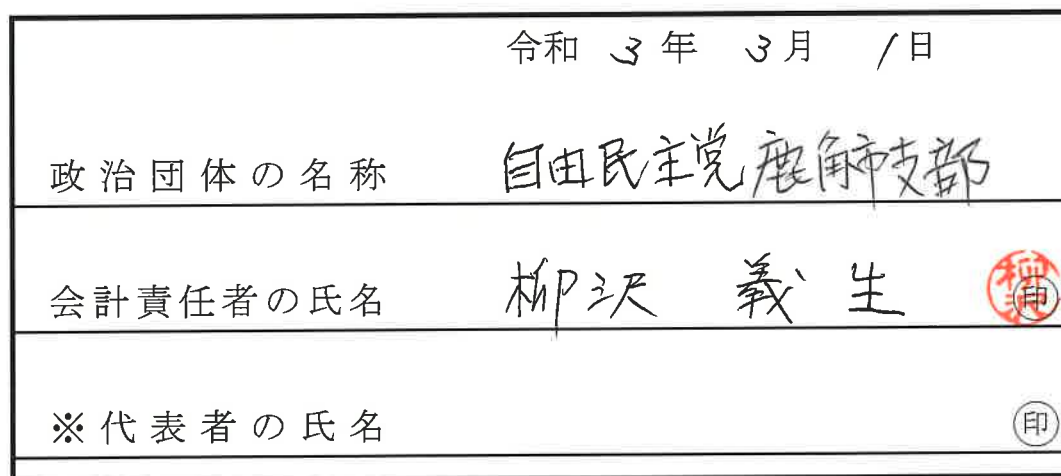 令和 3年 3月 1日
政治団体の名称 自由民主党鹿角市支部
会計責任者の氏名 柳沢 義生 柳沢 印
※代表者の氏名 印